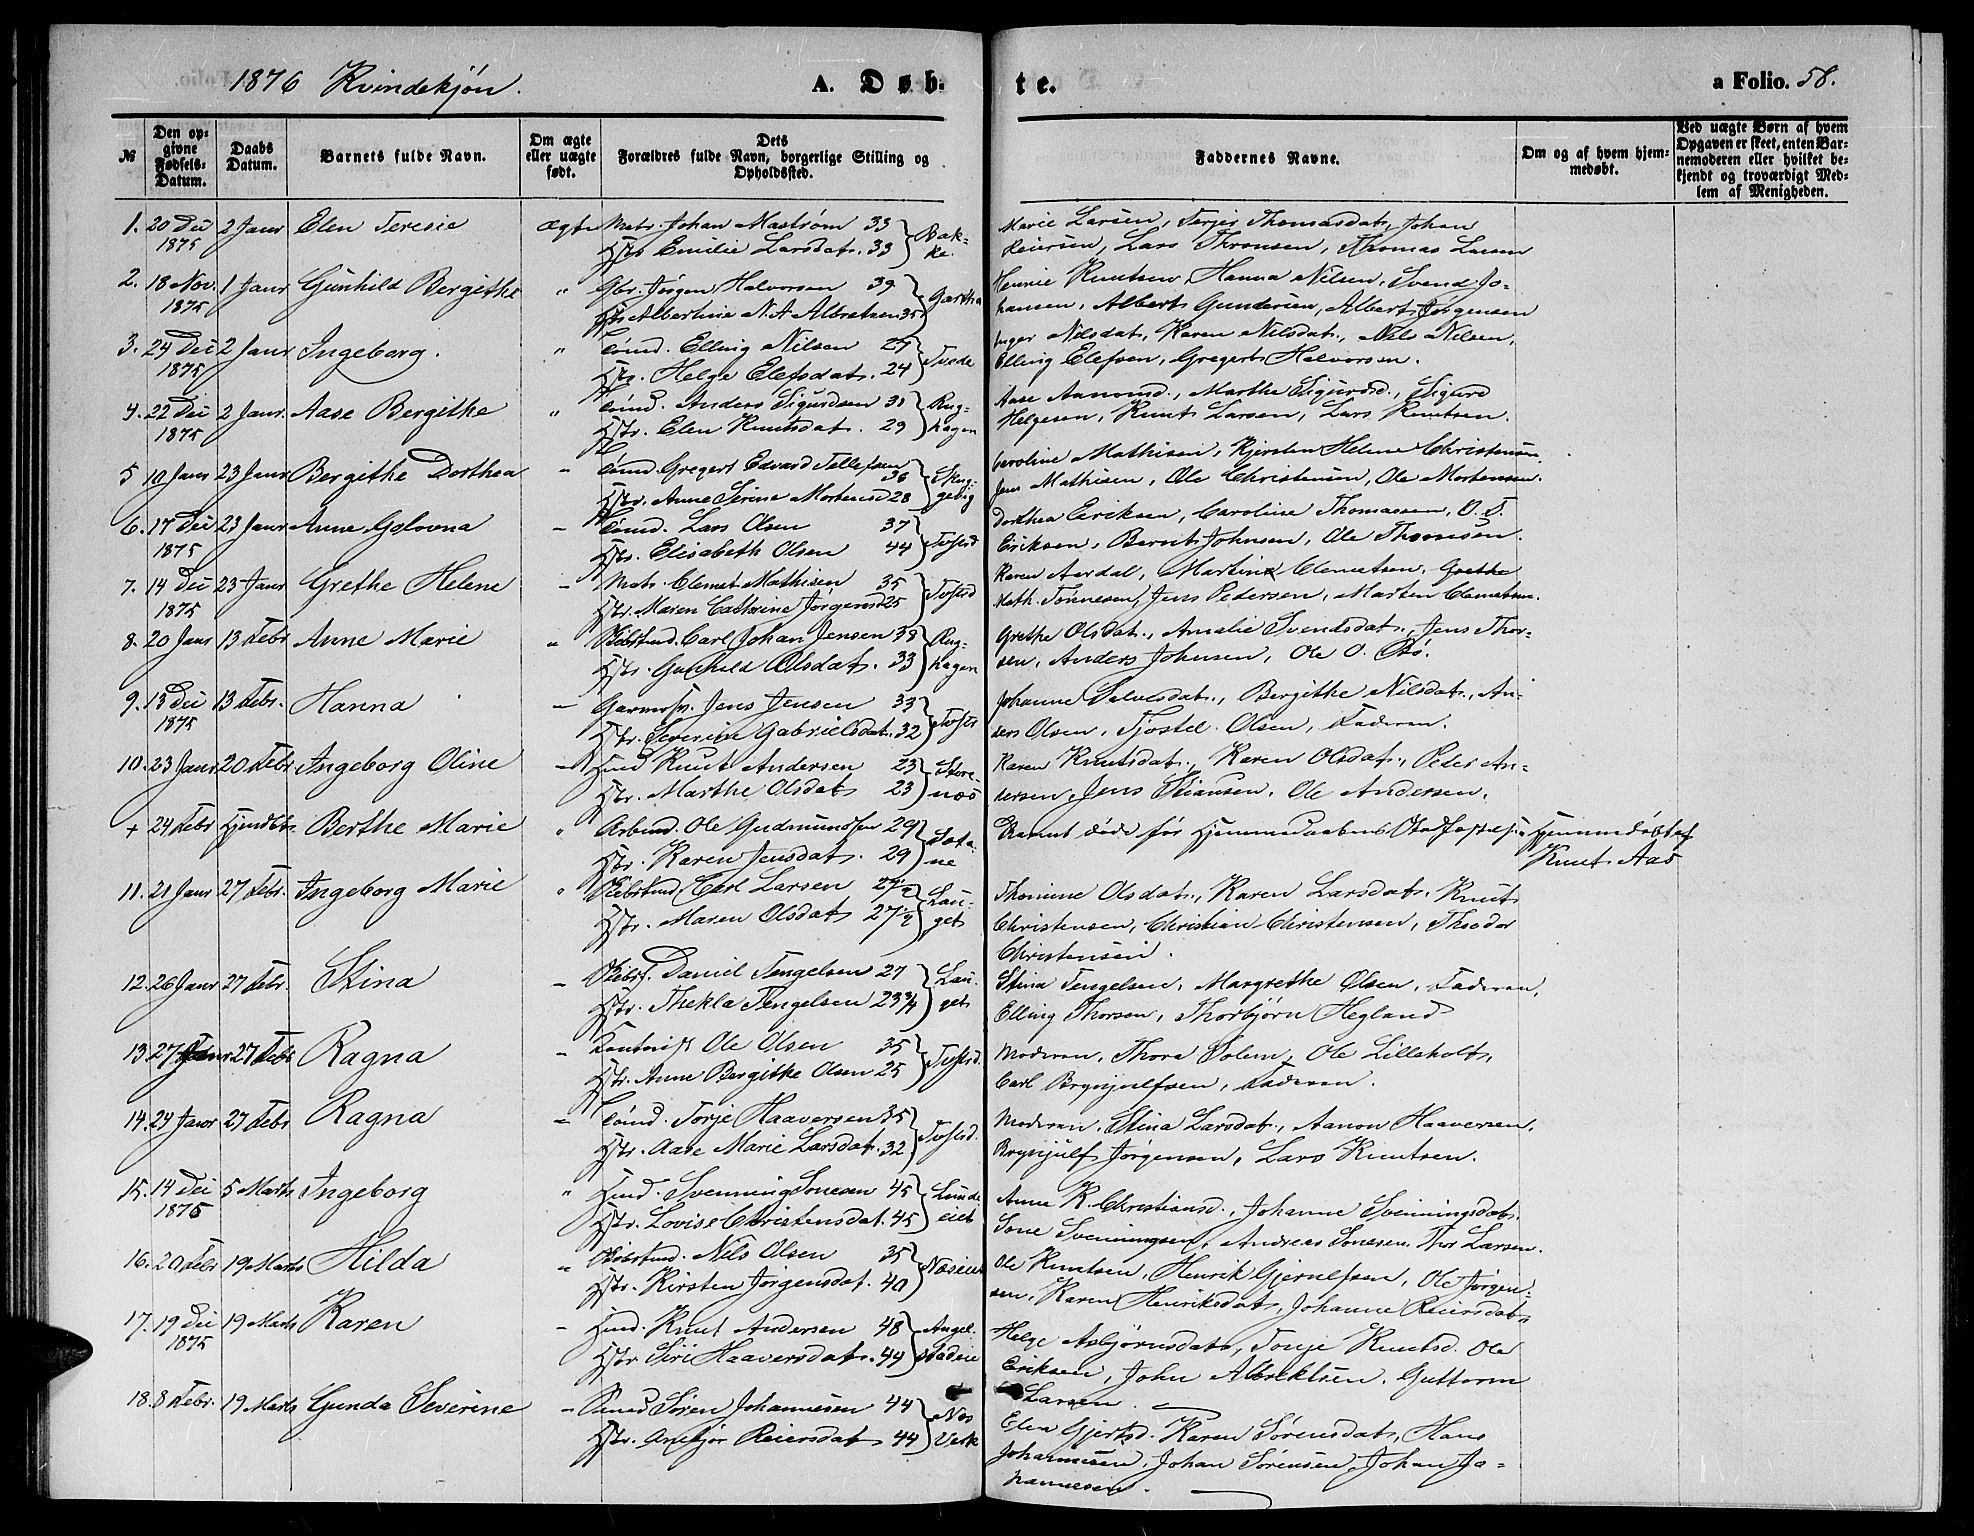 1876 Kvindekjøn.
A. Døb-
te.
a Folio. 58.
№
Den op-
givne
Fødsels-
Datum.
Daabs
Datum.
Barnets fulde Navn.
Om ægte
eller uægte
født.
Dets
Forældres fulde Navn, borgerlige Stilling og
Opholdssted.
Faddernes Navne.
Om og af hvem hjem-
medøbt.
Ved uægte Børn af hvem
Opgaven er skeet, enten Bar-
nemoderen eller hvilket be-
kjendt og troværdigt Med-
lem af Menigheden.
1. 20 Dec 2 Janr Elen Teresie ægte Matr. Johan Mastrøm 33 Bak-
1875 Hstr Emilie Larsdat. 33 ke.
Marie Larsen, Terjer Thomasdat, Johan
Reiersen, Lars Thronsen, Thomas Larsen
2. 18 Nov. 1 Janr Gunhild Bergithe " Gbr. Jørgen Halvorsen 39 Gartha
1875 Hstr Albertine N. A Albretsen 35
Henrie Knutsen, Hanna Nilsen, Svend Jo-
hansen, Albert Gundersen, Albert Jørgensen
3. 24 Dec 2 Janr Ingeborg. " Tømd. Elling Nilsen 27 Tvede
1875 Hstr. Helge Elefsdat. 24
Inger Nilsdat, Karen Nilsdat., Nils Nilsen,
Elling Elefsen, Gregert Halvorsen.
4. 22 Dec 2 Janr. Aase Bergithe " Tømd. Anders Sigurdsen 30 Rug-
1875 Hstr. Elen Knutsdat. 29 hagen
Aase Aanonsd., Marthe Sigurdsd., Sigurd
Helgesen, Knut Larsen, Lars Knutsen.
5 10 Janr 23 Janr Bergithe Dorthea - Tømd. Gregert Edvard Tellefsen
36
Hstr. Anne Serine Mortensd 28
Caroline Mathisen, Kjersten Helene Christensen,
Jens Mathisen, Ole Christensen, Ole Mortensen.
6. 17 Dec 23 Janr Anne Golovna - Tømd. Lars Olsen 37 Tvstrd
1875 Hstr. Elisabeth Olsen 44
Dorthea Eriksen, Caroline Thomassen, O. T.
Eriksen, Bernt Johnsen, Ole Thomsen.
7. 14 Dec 23 Janr Grethe Helene - Matr. Clemet Mathisen 35 Tvstrd
1875 Hstr. Maren Cathrine Jørgensd 25
Karen Aardal, Martine Clemetsen, Grethe
Math. Tønnesen, Jens Pedersen, Morten Clemetsen.
8. 20 Janr 13 Febr Anne Marie " Skibstmd. Carl Johan Jensen 38 Rug-
Hstr. Gunhild Olsdat. 33 hagen
Grethe Olsdat., Amalie Svendsdat., Jens Thor-
sen, Anders Johnsen, Ole O. Bø.
9. 13 Dec 13 Febr. Hanna - Garversv. Jens Jensen 33 Tvstr
1875 Hstr. Severine Gabrielsdat. 32
Johanne Salvesdat., Bergithe Nilsdat., An-
ders Olsen, Tjostel Olsen, Faderen.
10. 23 Janr 20 Febr Ingeborg Oline - Hmd Knut Andersen 23 Store-
Hstr. Marthe Olsdat 23 næs
Karen Knutsdat., Karen Olsdat., Peder An-
dersen, Jens Stiansen, Ole Andersen.
+ 24 Febr Hjemdøbt Berthe Marie " Arbmd. Ole Gudmundsen 29
Hstr. Karen Jensdat. 29
Barnet døde før Hjemmedaabens Stadfæstelse Hjemmedøbt af
Knut Aas
11. 21 Janr 27 Febr. Ingeborg Marie " Skibstmd Carl Larsen 27½ Lau-
Hstr. Maren Olsdat 27½ get
Thomine Olsdat., Karen Larsdat, Knut
Christensen, Christian Christensen, Theodor
Christensen.
12. 26 Janr 27 Febr. Stina - Skibsf. Daniel Tengelsen 27 Lau-
Hstr. Thekla Tengelsen 23¾ get
Stina Tengelsen, Margrethe Olsen, Faderen,
Elling Thorsen, Thorbjørn Hegland
13. 27 Janr 27 Febr Ragna - Kontorist Ole Olsen 35 Tvstrd.
Hstr. Anne Bergithe Olsen 25
Moderen, Thora Solem, Ole Lilleholt,
Carl Brynjulfsen, Faderen.
14. 24 Janr 27 Febr Ragna - Tømd. Torje Haaversen 35 Tvstrd.
Hstr. Aase Marie Larsdat. 32
Moderen, Stina Larsdat., Aanon Haaversen,
Brynjulf Jørgensen, Lars Knutsen.
15. 14 Dec 5 Marts Ingeborg " Hmd. Svenning Sonesen 45 Lunde
1876 Hstr. Lovise Christensdat. 45 eiet
Anne K. Christiansd., Johanne Svenningsdat.
Sone Svenningsen, Andreas Sonesen, Thor Larsen.
16. 20 Febr 19 Marts Hilda " Skibstmd. Nils Olsen 35 Næseiet
Hstr. Kirsten Jørgensdat. 40
Ole Knutsen, Henrik Gjerulfsen, Ole Jørgen-
sen, Karen Henriksdat, Johanne Reiersdat
17. 19 Dec 19 Marts Karen - Hmd. Knut Andersen 48 Angel-
1875 Hstr Siri Haaversdat. 44 stadeie
Helge Asbjørnsdat, Tonje Knutsd. Ole
Eriksen, John Albrektsen, Guttorm
Larsen.
18. 8 Febr. 19 Marts Gunda Severine - Smed Søren Johannesen 44 Næs
Hstr. Anbjør Reiersdat 44 Værk
Elen Gjertsd. Karen Sørensdat, Hans
Johannesen, Johan Sørensen, Johan Jo-
hannesen.